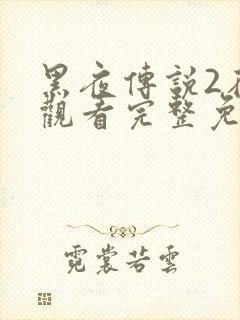 黑夜傳說2
觀看完整免
霓裳若雲